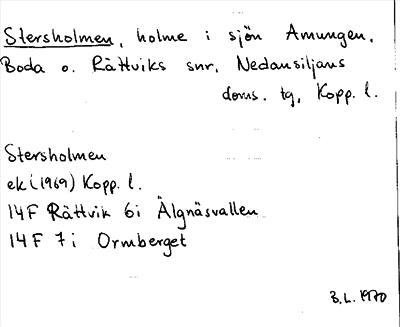 Stersholmen, holme i sjön Amungen,
Boda o. Rättviks snr, Nedansiljans
doms. tg, Kopp. l.
Stersholmen
ek (1969) Kopp. l.
14F Rättvik 6i Älgnäsvallen
14F 7i Ormberget
B.L. 1970